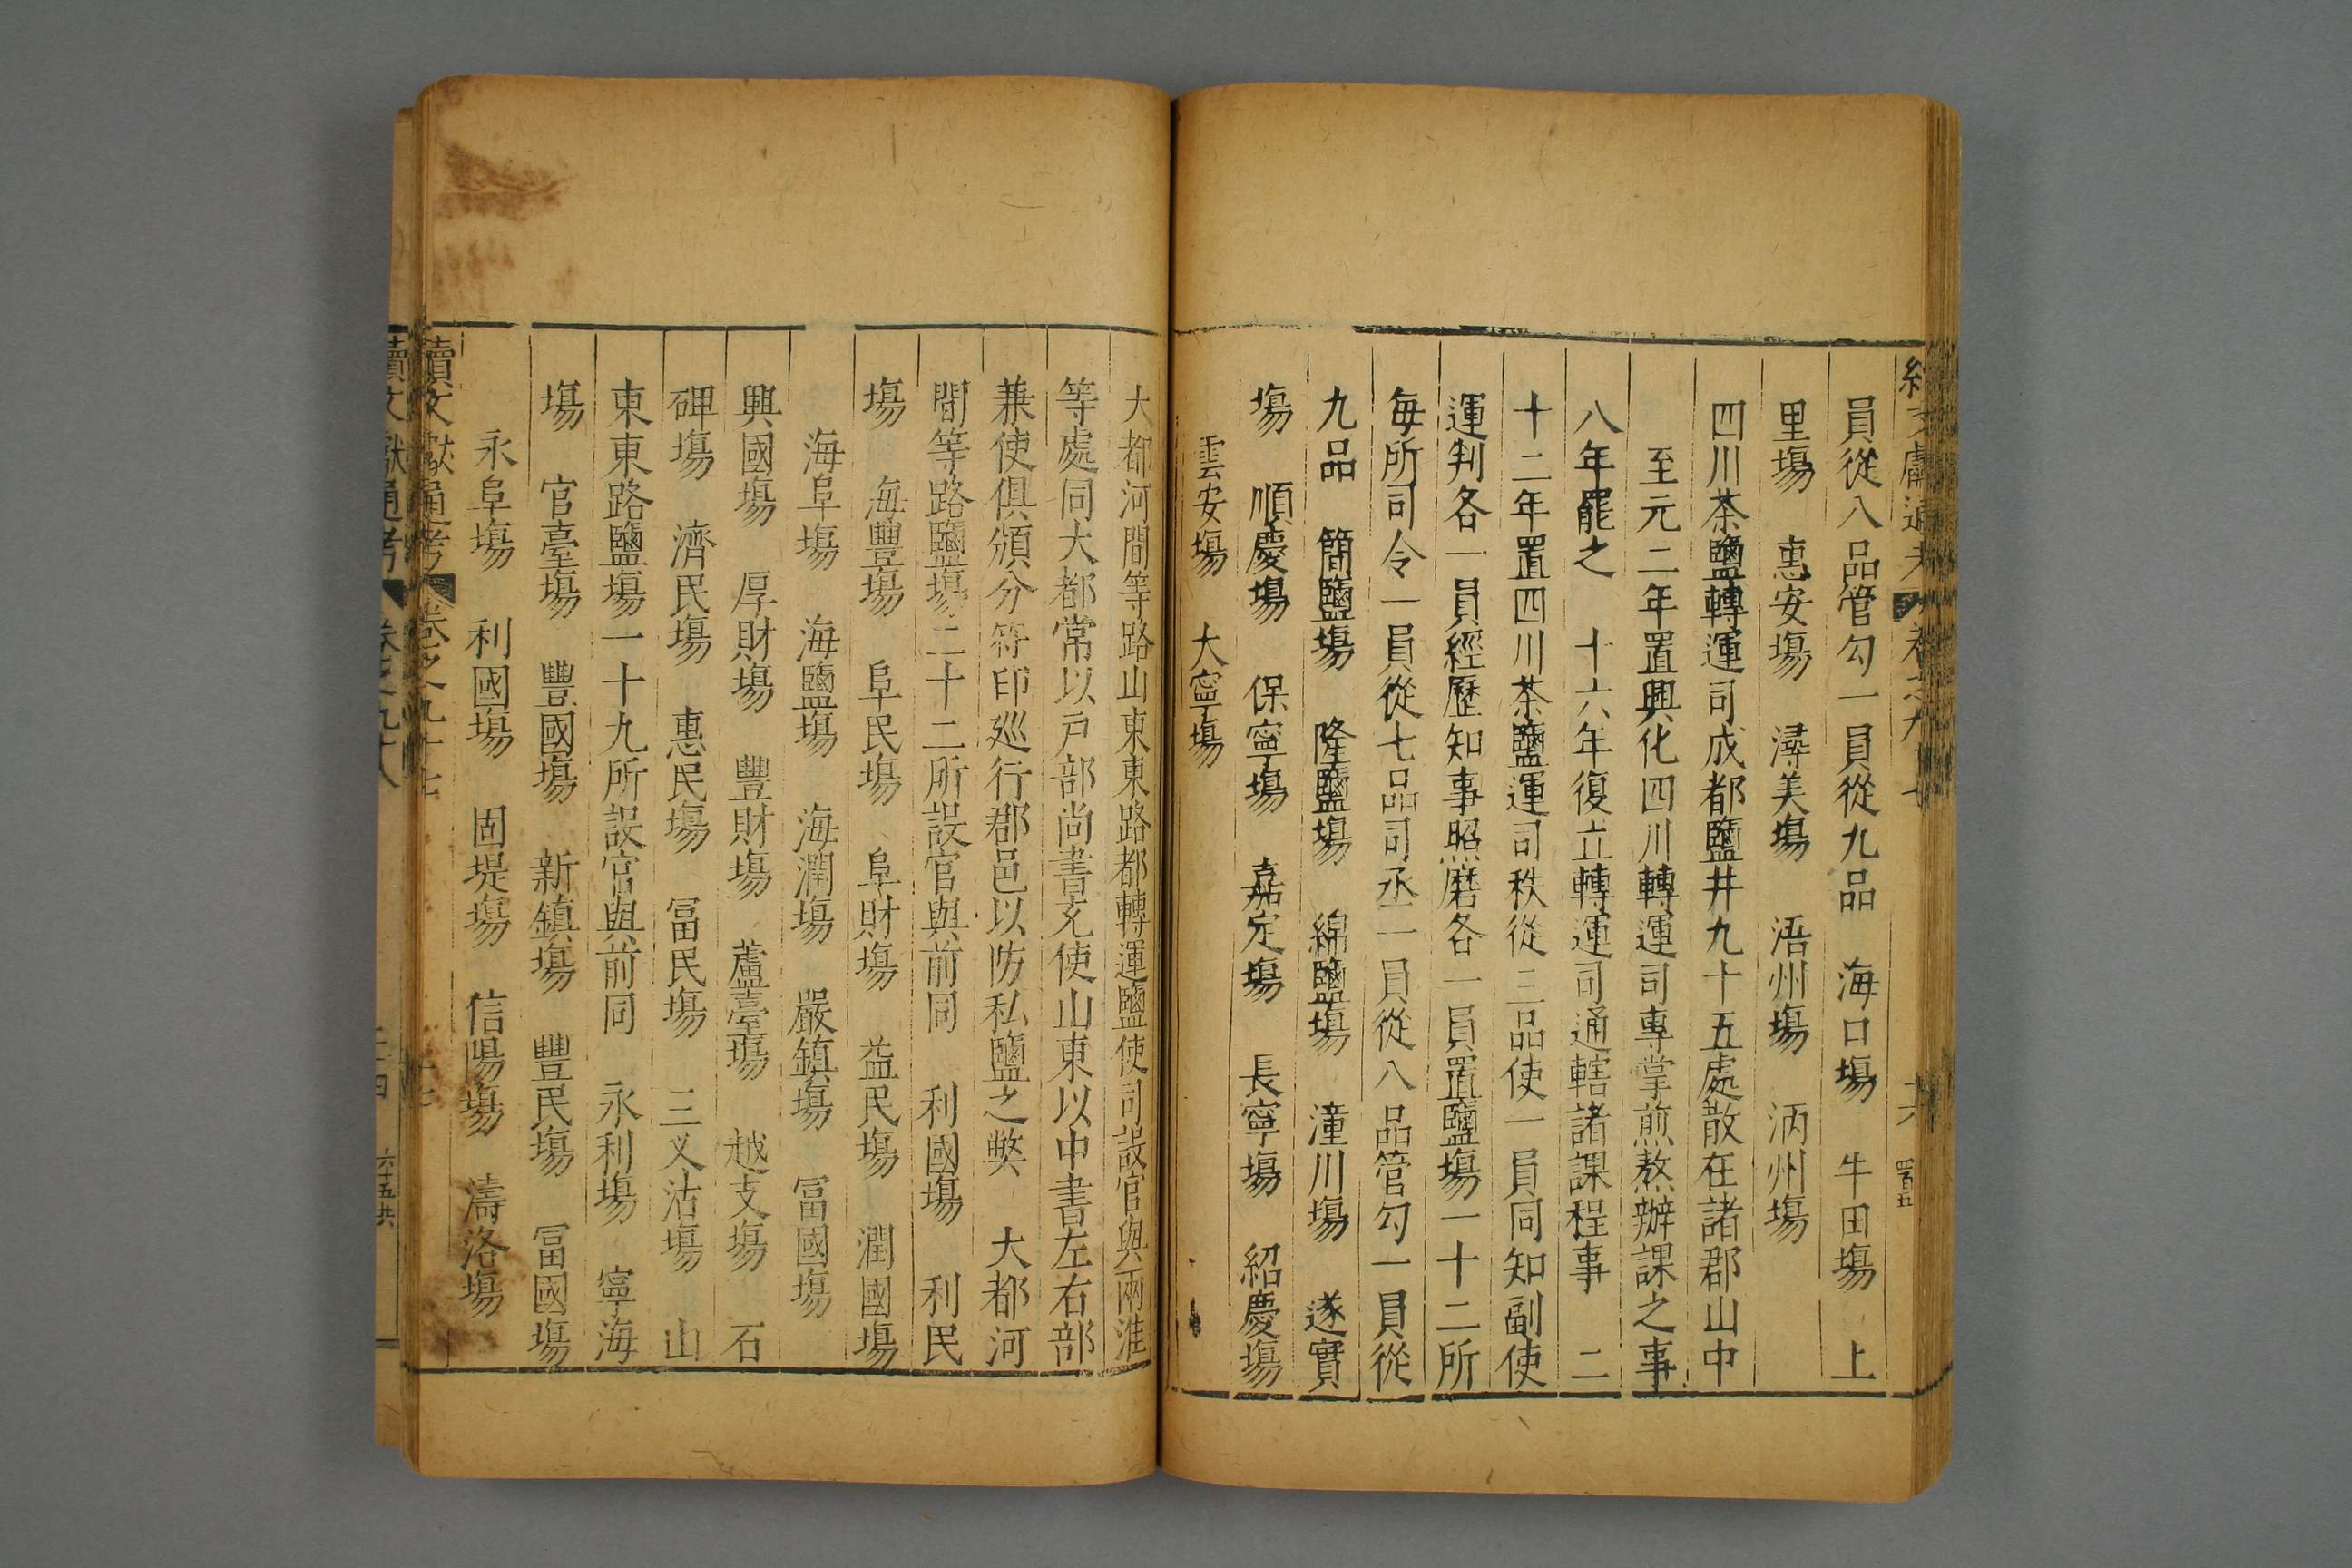 員從八品管勾一員從九品　海口塲　牛田塲　上
里塲　惠安塲　潯美塲　浯州塲　㳉州塲
四川茶鹽轉運司成都鹽井九十五處散在諸郡山中
至元二年置興化四川轉運司專掌煎熬辦課之事
八年罷之　十六年復立轉運司通轄諸課程事　二
十二年置四川茶鹽運司秩從三品使一員同知副使
運判各一員經歷知事照磨各一員置鹽塲一十二所
每所司令一員從七品司丞一員從八品管勾一員從
九品　簡鹽塲　隆鹽塲　綿鹽塲　潼川塲　遂實
塲　順慶塲　保寧塲　嘉定塲　長寧塲　紹慶塲
雲安塲　大寧塲
大都河間等路山東東路都轉運鹽使司設官與兩淮
等處同大都常以戶部尚書充使山東以中書左右部
兼使俱頒分符印巡行郡邑以防私鹽之弊　大都河
間等路鹽塲二十二所設官與前同　利國塲　利民
塲　海豐塲　阜民塲　阜財塲　益民塲　潤國塲
海阜塲　海鹽塲　海潤塲　嚴鎮塲　冨國塲
興國塲　厚財塲　豐財塲　蘆臺塲　越支塲　石
碑塲　濟民塲　惠民塲　冨民塲　三叉沽塲　山
東東路鹽塲一十九所設官與前同　永利塲　寧海
塲　官臺塲　豐國塲　新鎮塲　豐民塲　冨國塲
永阜塲　利國塲　固堤塲　信陽塲　濤洛塲
續文獻通考　卷之九十七